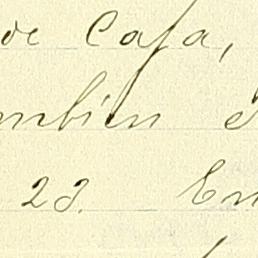 de Casa,
mbien
23. En